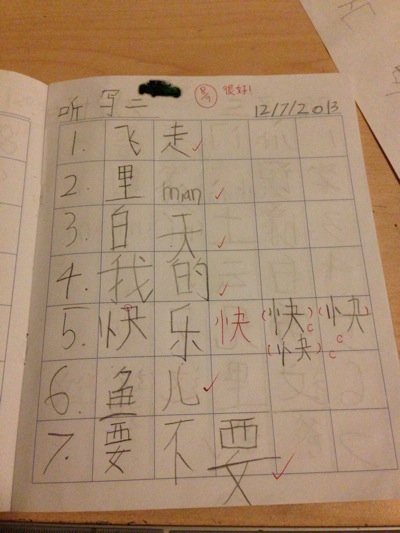 听写二 很好! 12/7/2013
1. 飞走
2. 里mian
3. 白天
4. 我的
5. 快乐 快 (快)c (快)c
(快)c
6. 鱼儿
7. 要不要